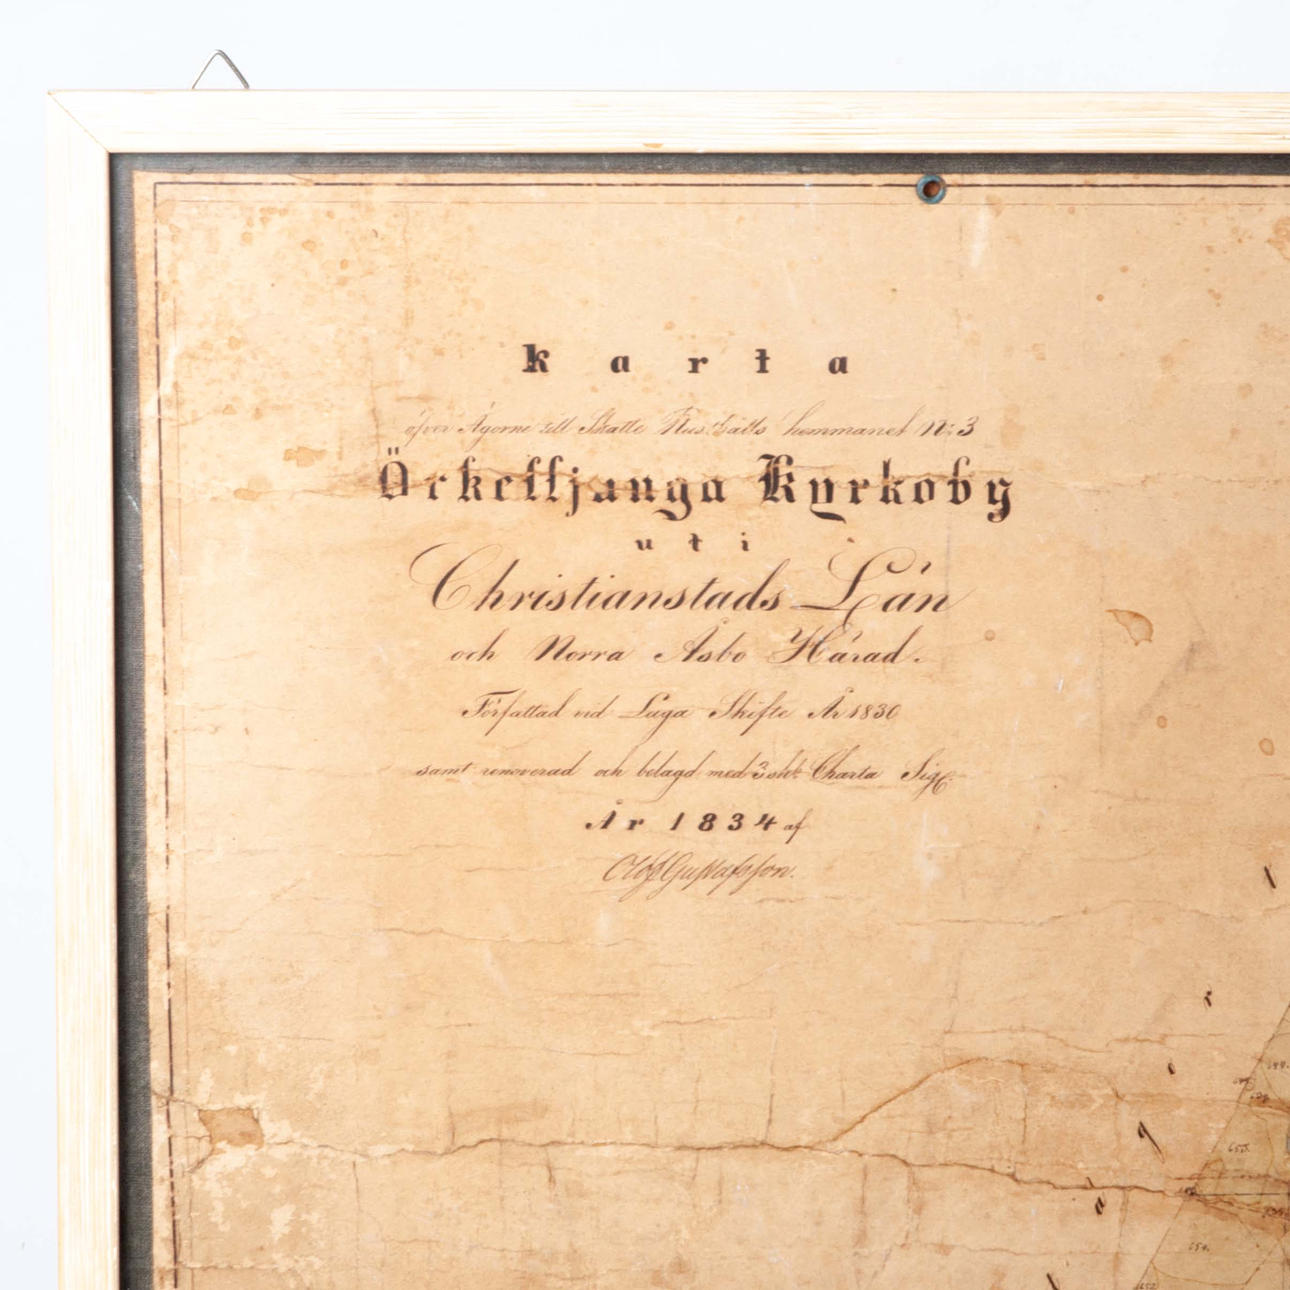 Karta
öfver Ägorne till Skatte Rusthålls hemmanet N: 3
Örkelljunga Kyrkoby
uti
Christianstads Län
och Norra Åsbo Härad.
Författad vid Laga Skifte År 1830
samt renoverad och belagd med 3 sk: Charta Sig:
År 1834 af
Oloff Gustafsson.
r
g
a
653.
654.
652